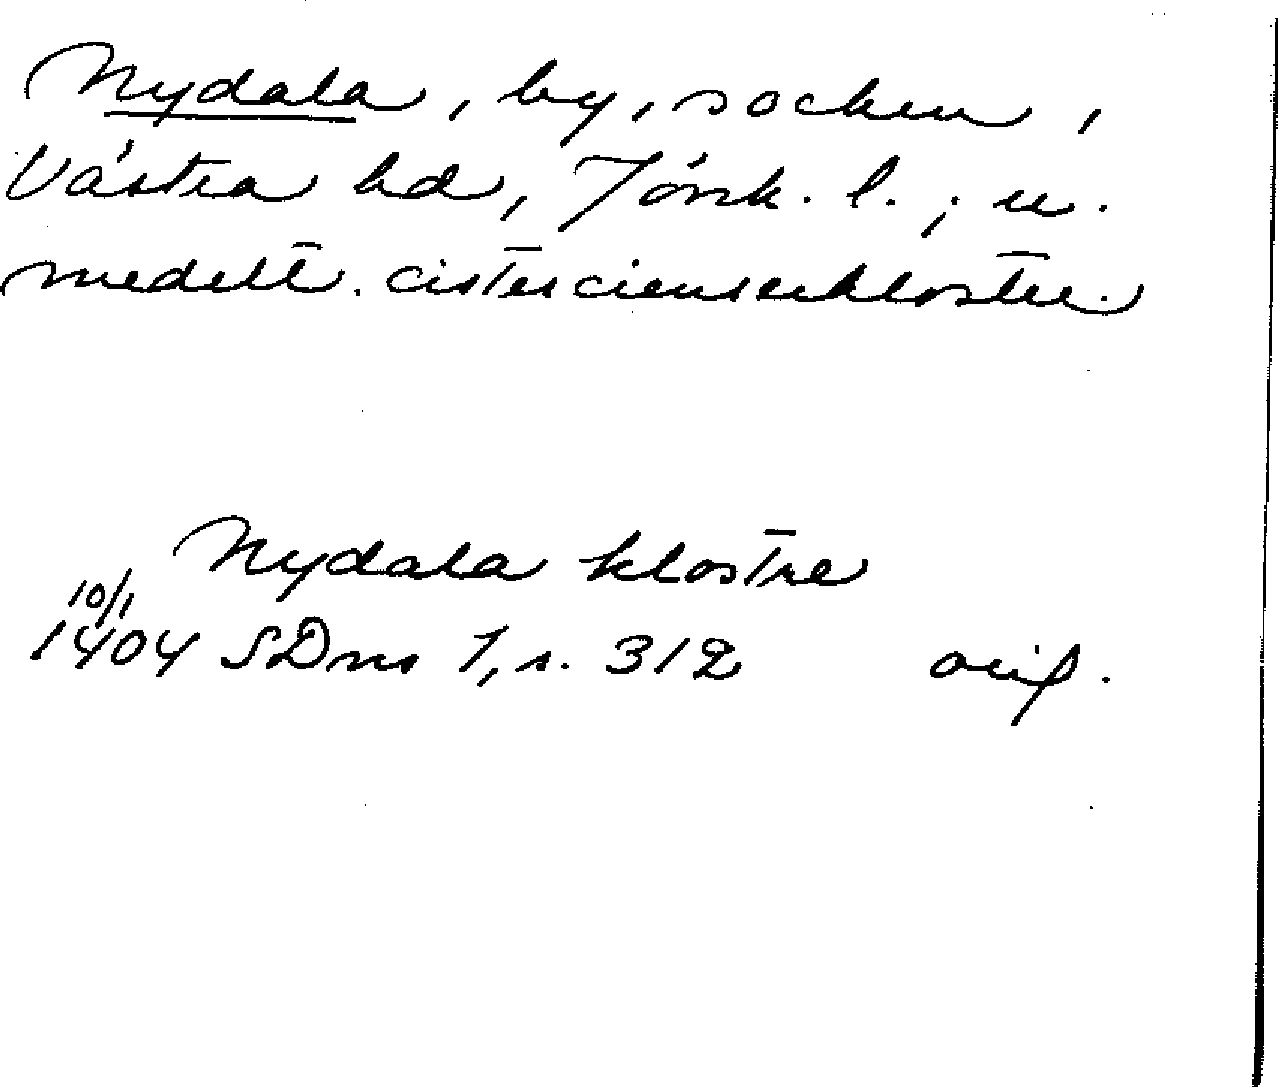 Nydala, by, socken,
Västra hd, Jönk. l.; u.
medelt. cistercienserkloster.
Nydala klostre
10/1
1404 SDns 1, s. 312 orig.